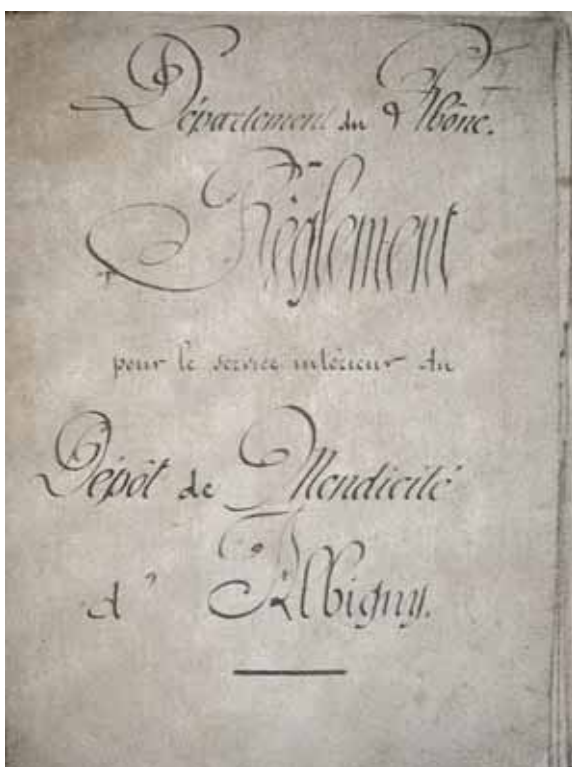 Département du Rhône.
Règlement
pour le service intérieur du
Dépôt de Mendicité
d'Albigny.